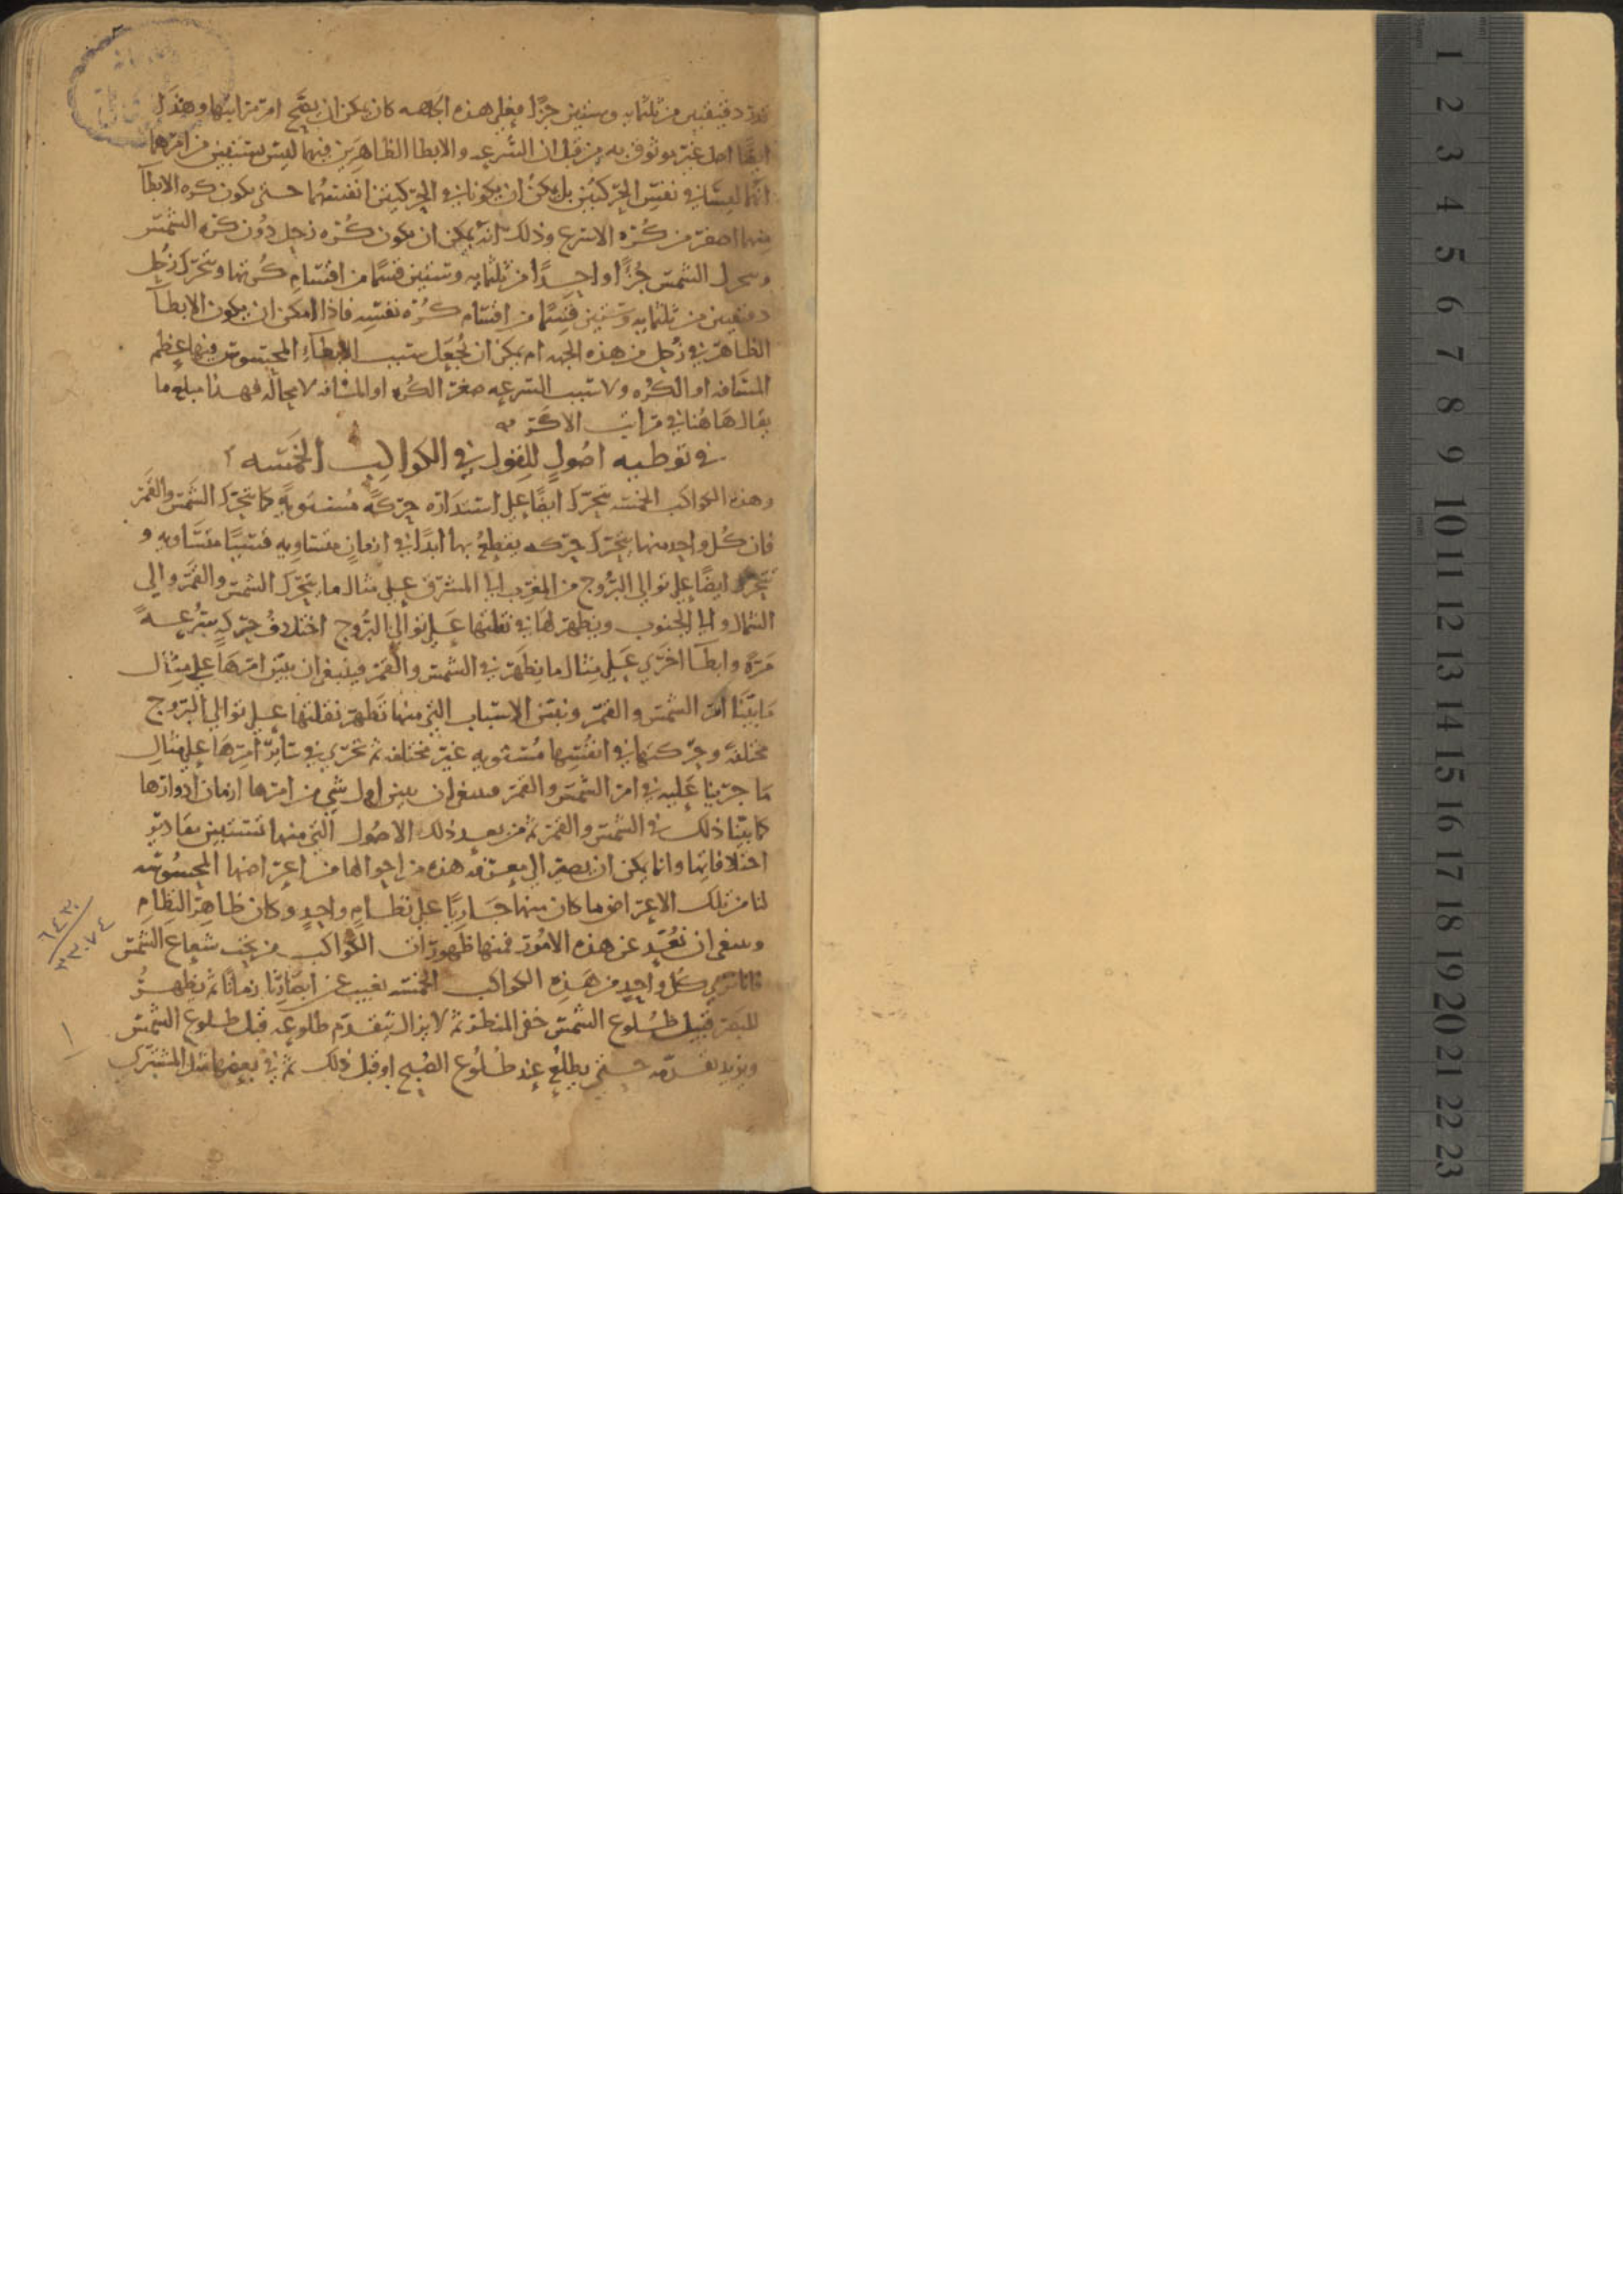 دقيقتين من ثلثمايه وستين جزًا فعلى هذه الجهه كان يمكن ان يصح امر مراتبها وهذا
ايضًا اصل غير موثوق به من قبل ان السرعه والابطا الظاهرين فيهما ليس يستبين من امرهما
انهما ليسا في نفس الحركتين بل يمكن ان يكونا في الحركتين انفسهما حتى يكون كره الابطا
منهما اصغر من كُره الاسرع وذلك انه يمكن ان يكون كُره زحل دُون كره الشمس
وتتحرك الشمس جُزًا واحدًا من ثلثمايه وستين قسمًا من اقسام كُرتها ويتحرك زحل
دقيقتين من ثلثمايه وستين قسمًا من اقسام كُره نفسه فاذا امكن ان يكون الابطا
الظاهر في زحل من هذه الجهه لم يمكن ان يُجعَل سبب الابطاء المحسوس فيها عظم
المسافه او الكُره ولا سبب السرعه صغر الكره او المسافه لا محاله فهذا مبلغ ما
يقال هَاهُنا في مراتب الاكر
في توطيه اصُولٍ للقول في الكواكب الخمسَه
وهذه الكواكب الخمسه تتحرك ايضًا على استدَاره حركهً مُستويهً كما تتحرك الشمس والقمر
فان كُل واحد منها يتحرك حركه يقطع بها ابدًا في ازمانٍ متساويه قسيًا متسَاويه و
تتحرك ايضًا على توالي البرُوج من المغرب الى المشرق على مثال ما يتحرك الشمس والقمر والى
الشمال والى الجنوب ويظهر لهَا في نقلتها عَلى توالي البرُوج اختلافُ حركهٍ سُرعهً
مَرّه وابطَا اخرى عَلى مثال ما يظهَر في الشمس والقمر فينبغي ان نبيّن امرهَا على مثال
مَا بيّنا امر الشمس والقمر ونبين الاسباب التي منها تَظهر نقلتها على توالي البروج
مختلفه وحركتها في انفُسِها مُستويه غير مختلفه ثم نجري في سَاير امرِهَا على مثالِ
مَا جرينا عَليه في امر الشمس والقمر فينبغي ان نبين اول شي من امرها ازمان ادوارها
كما بيّنا ذلك في الشمس والقمر ثم من بعد ذلك الاصُول التي منها تستبين مقادير
اختلافاتها وانما يمكن ان نصير الى معرفه هذه من احوالها من اعراضها المحسُوسه
لنا من تلك الاعراض ما كان منها جَاريًا على نظَام واحدٍ وكان ظاهر النظام
وينبغي ان نُعدد عن هذه الامُور فمنها ظهور ان الكواكب من تحت شعاع الشمس
فانا نرى كُل واحدٍ من هَذِه الكواكب الخمسه تغيب عن ابصَارِنا زمانًا ثم يظهر
للبصر قُبيل طُلوع الشمس خفى المنظر ثم لا يزال يتقدم طلوعه قبل طلوع الشمس
ويزيد تقدمه حتى يطلع عند طُلُوع الصُبح او قبل ذلك ثم في بعضها مثل المشترى
٦٤٣٠
٣٣٠٧٤
١
1
2
3
4
5
6
7
8
9
10
11
12
13
14
15
16
17
18
19
20
21
22
23